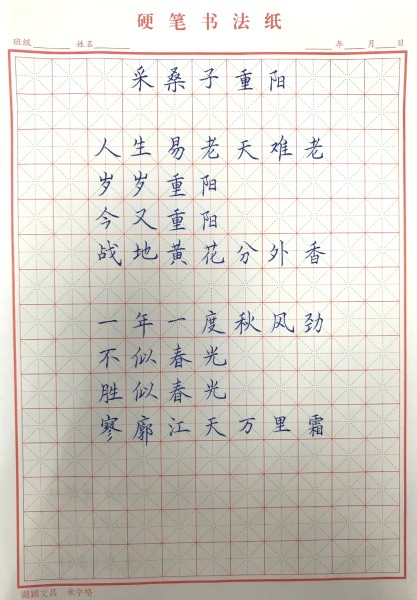 硬笔书法纸
班级 姓名 年 月 日
采桑子重阳
人生易老天难老
岁岁重阳
今又重阳
战地黄花分外香
一年一度秋风劲
不似春光
胜似春光
寥廓江天万里霜
湖颖文具 米字格